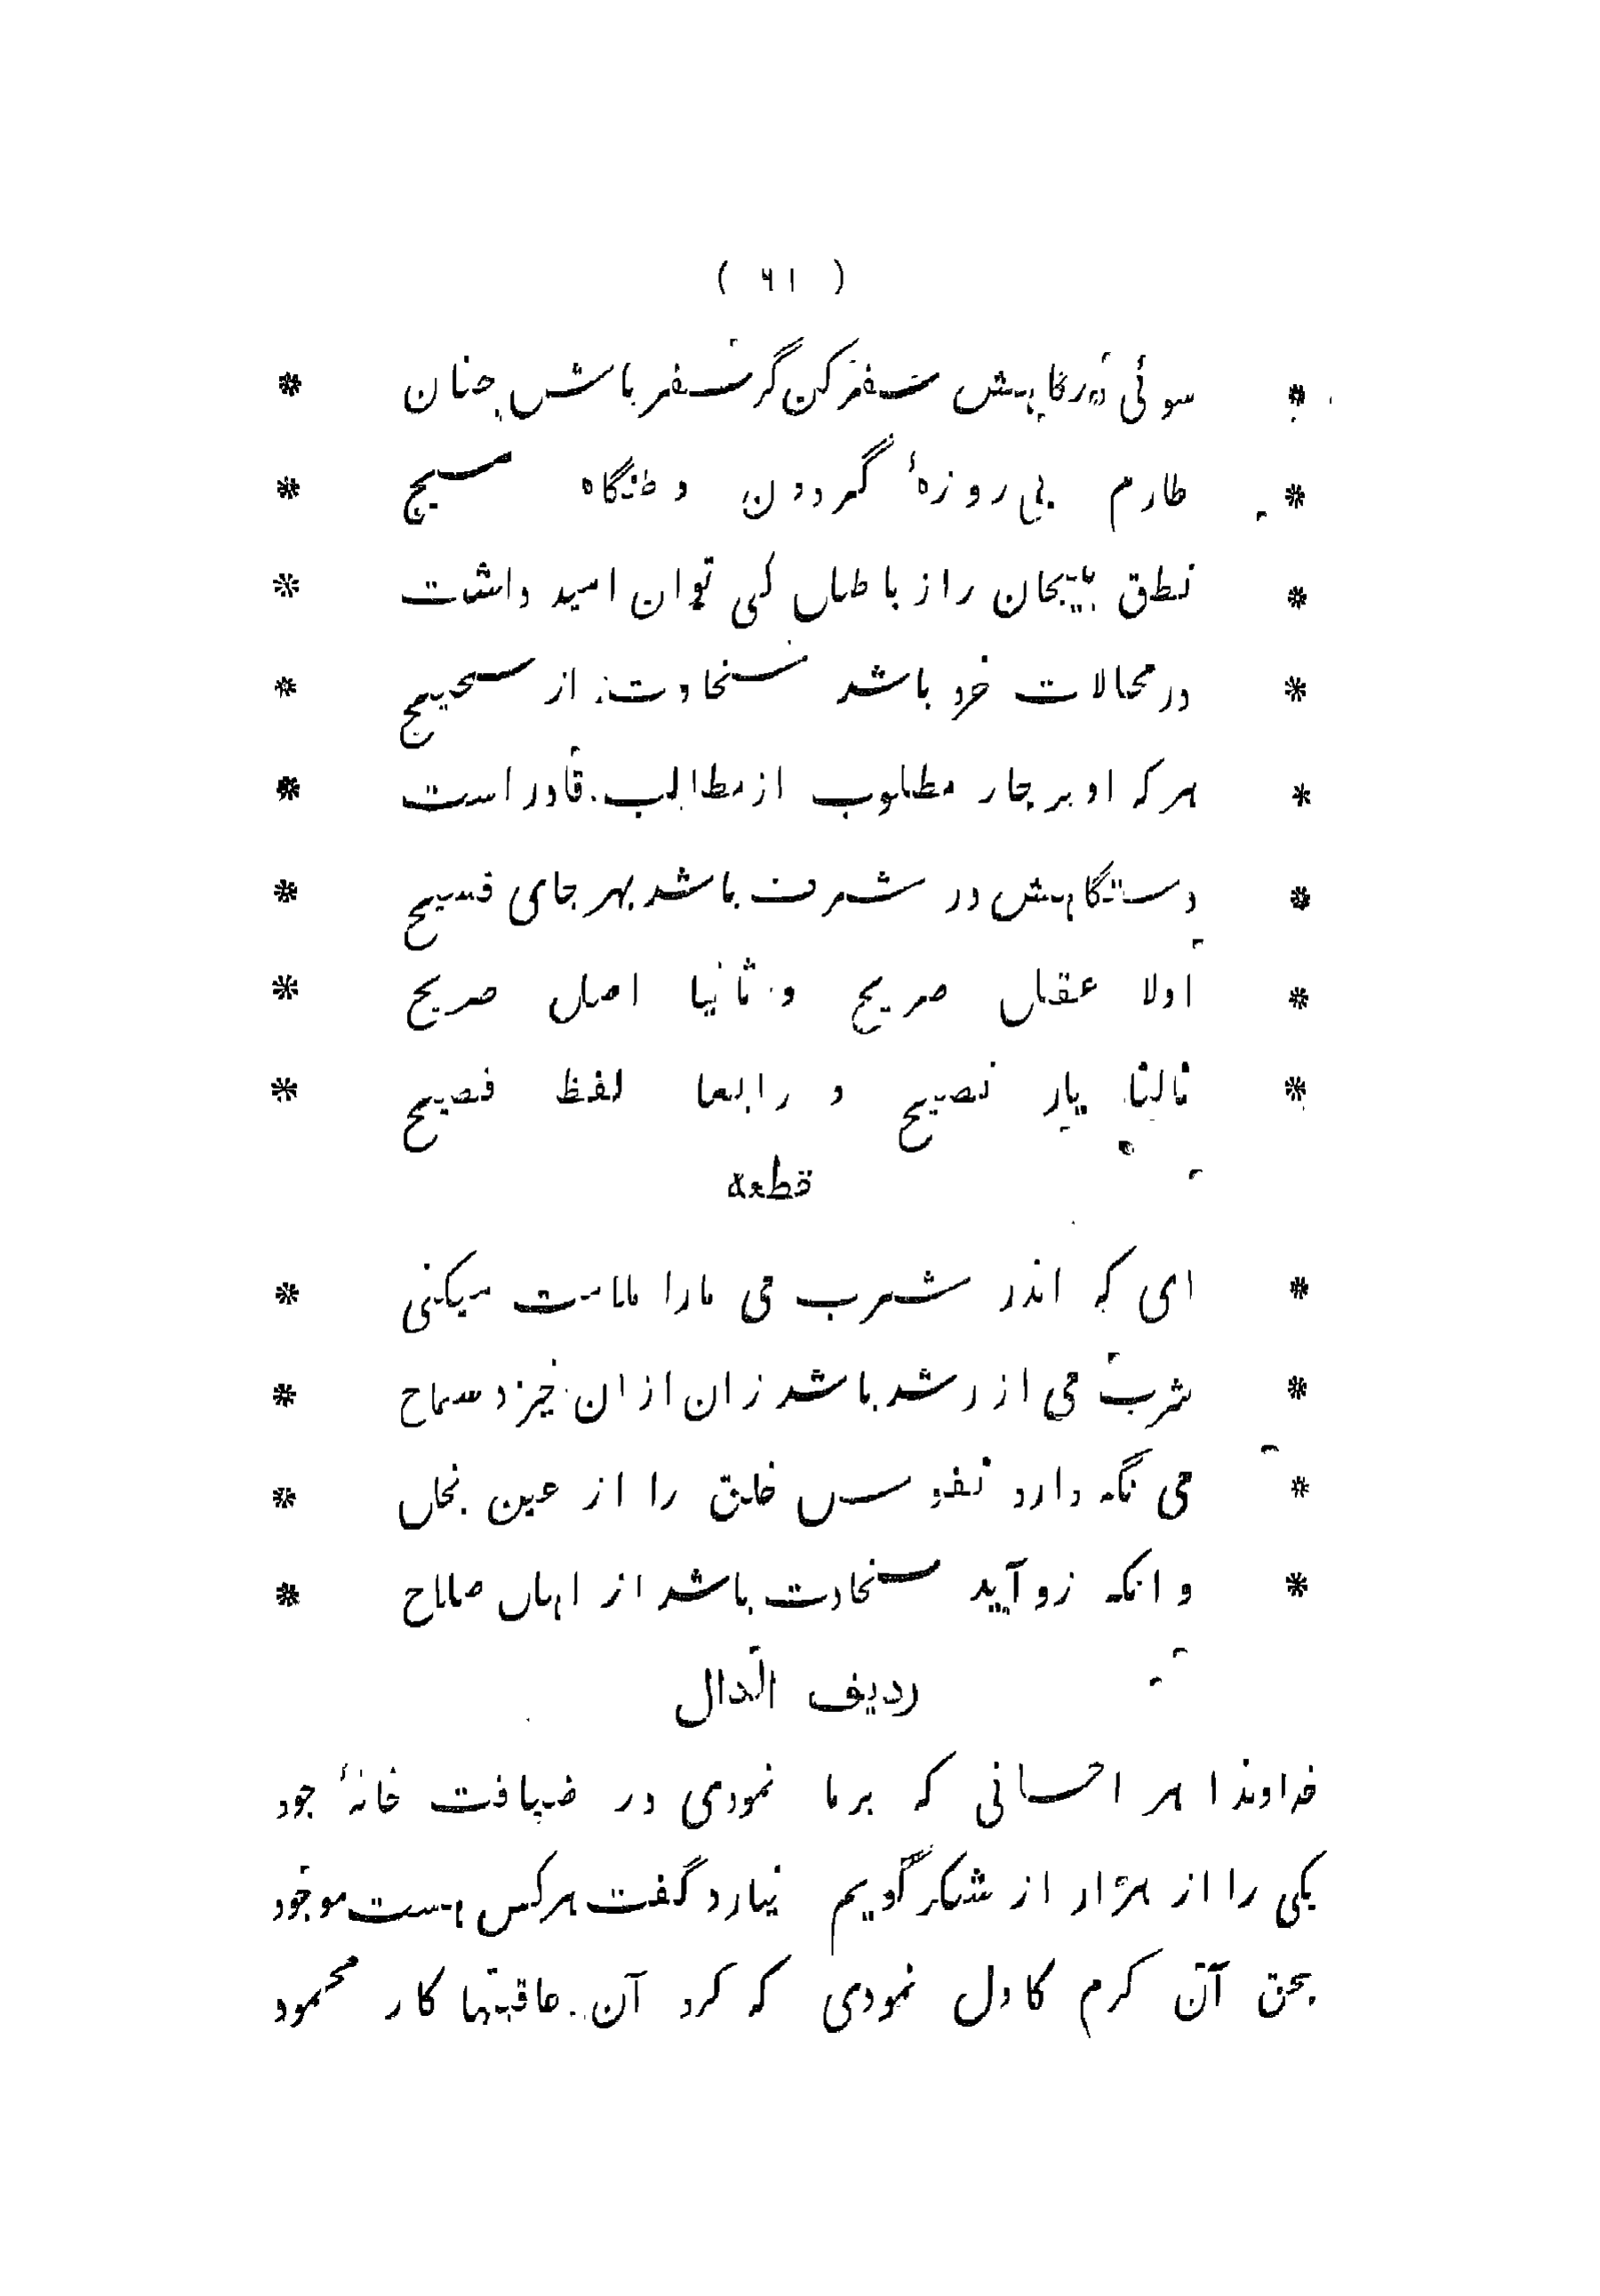 ( ٦١ )
* سوئی درگاهش سفر کن گر سفر باشد چنان *
* طارم بی روزهٔ گردون و طنگاه مسیح *
* نطق بیجان را ز باطل کی توان امید داشت *
* در محالات خرد باشد سخاوت از صحیح *
* هر که او بر چار مطلوب از مطالب قادر است *
* دستگاهش در شرف باشد بهر جای فسیح *
* اولا عقل صریح و ثانیا اصل صریح *
* ثالثا یار نصیح و رابعا لفظ فصیح *
قطعه
* ای که اندر شرب می مارا ملامت میکنی *
* شرب می از رشد باشد زان ازان خیزد سماح *
* می نگه دارد نفوس خلق را از عین بخل *
* و انکه زو آید سخاوت باشد از اهل صلاح *
ردیف الدال
خداوندا هر احسانی که بر ما نمودی در ضیافت خانهٔ جود
یکی را از هزار از شکر گویم نیارد گفت هرکس هست موجود
بحق آن کرم کاول نمودی که کرد آن عاقبتها کار محمود